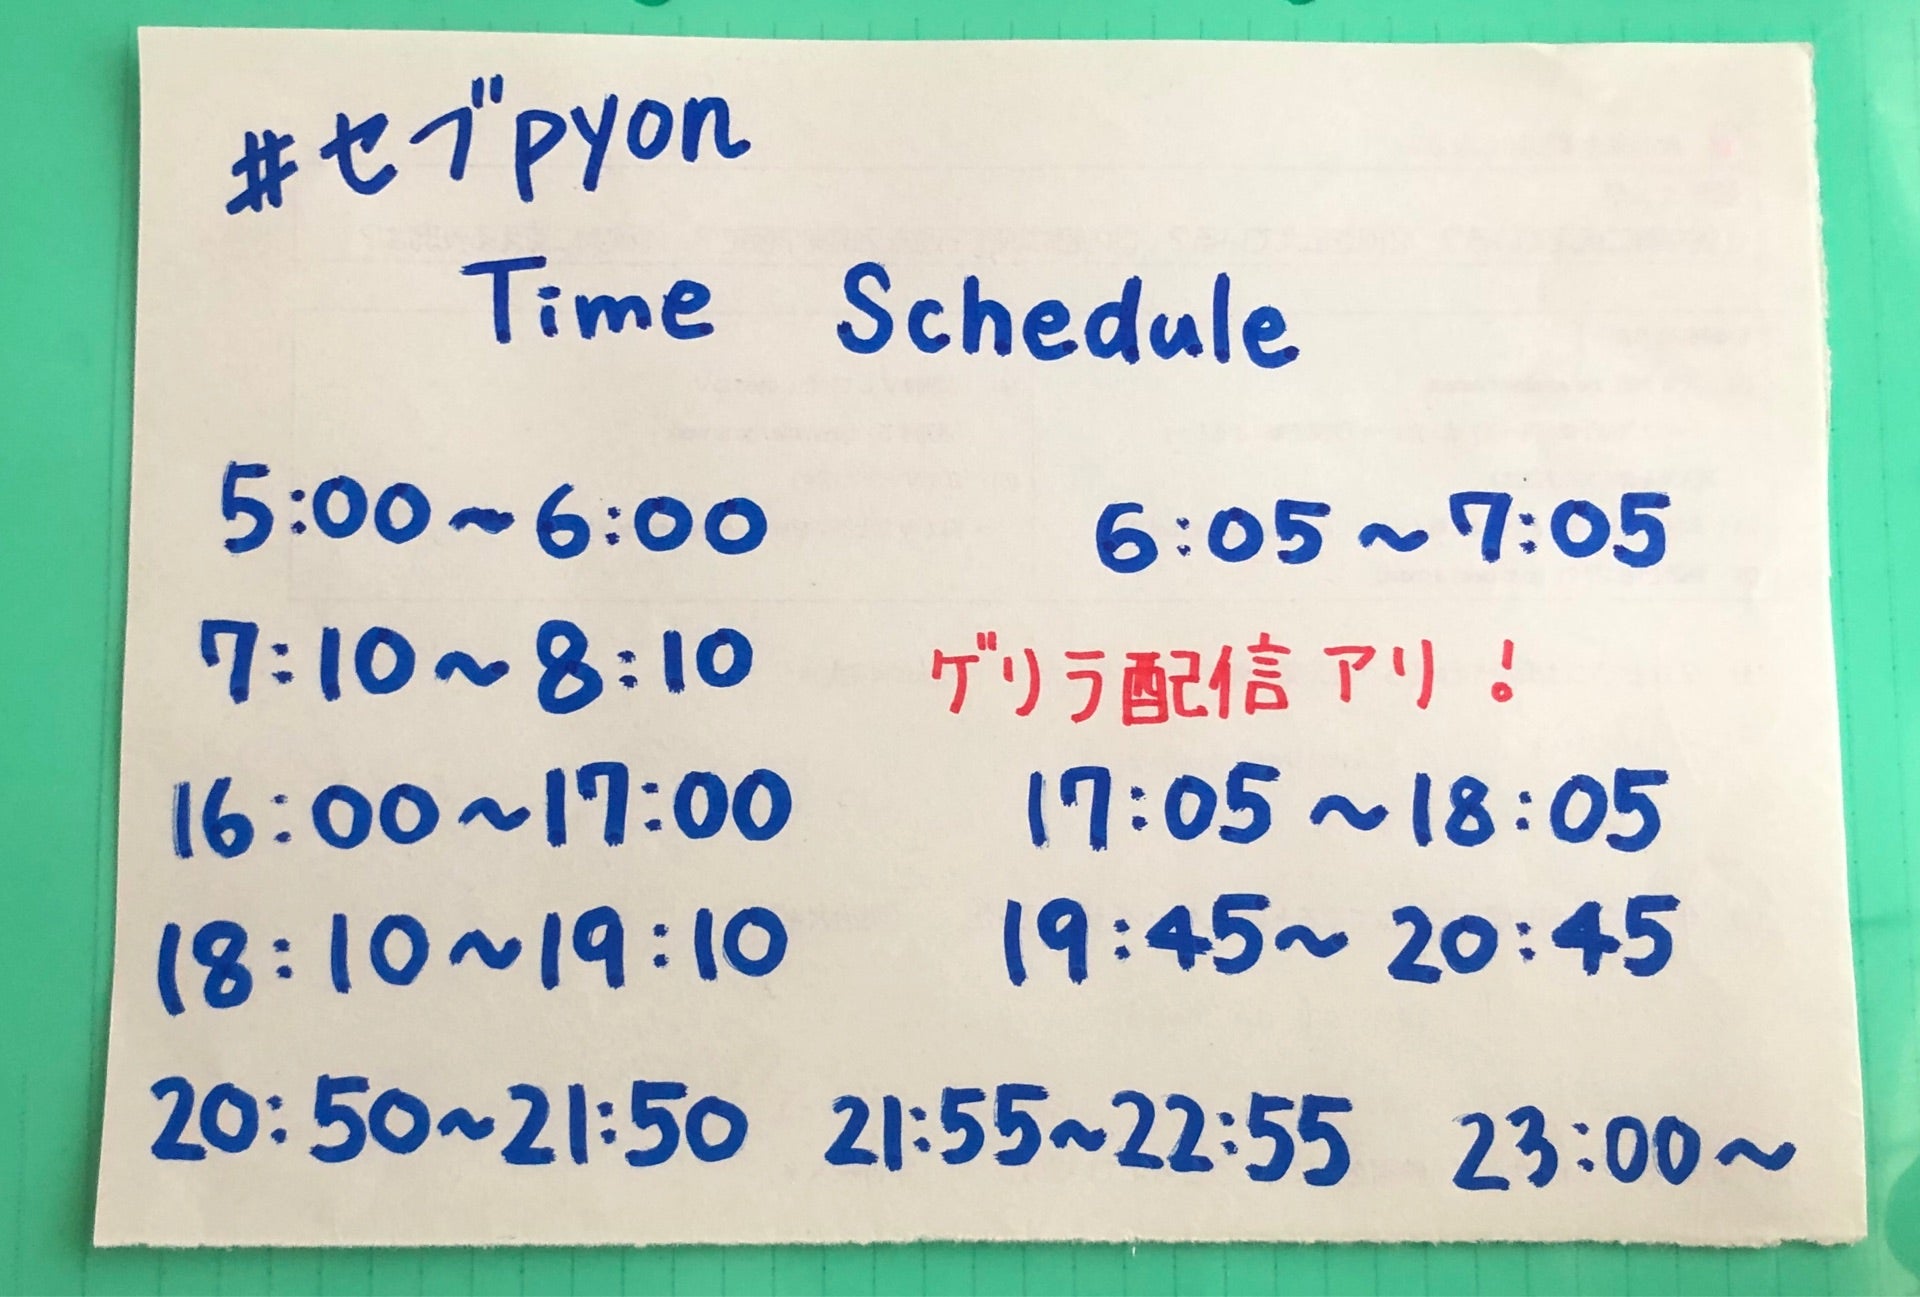 #セブpyon
Time Schedule
5:00～6:00 6:05～7:05
7:10～8:10 ゲリラ配信アリ！
16:00～17:00 17:05～18:05
18:10～19:10 19:45～20:45
20:50～21:50 21:55～22:55 23:00～